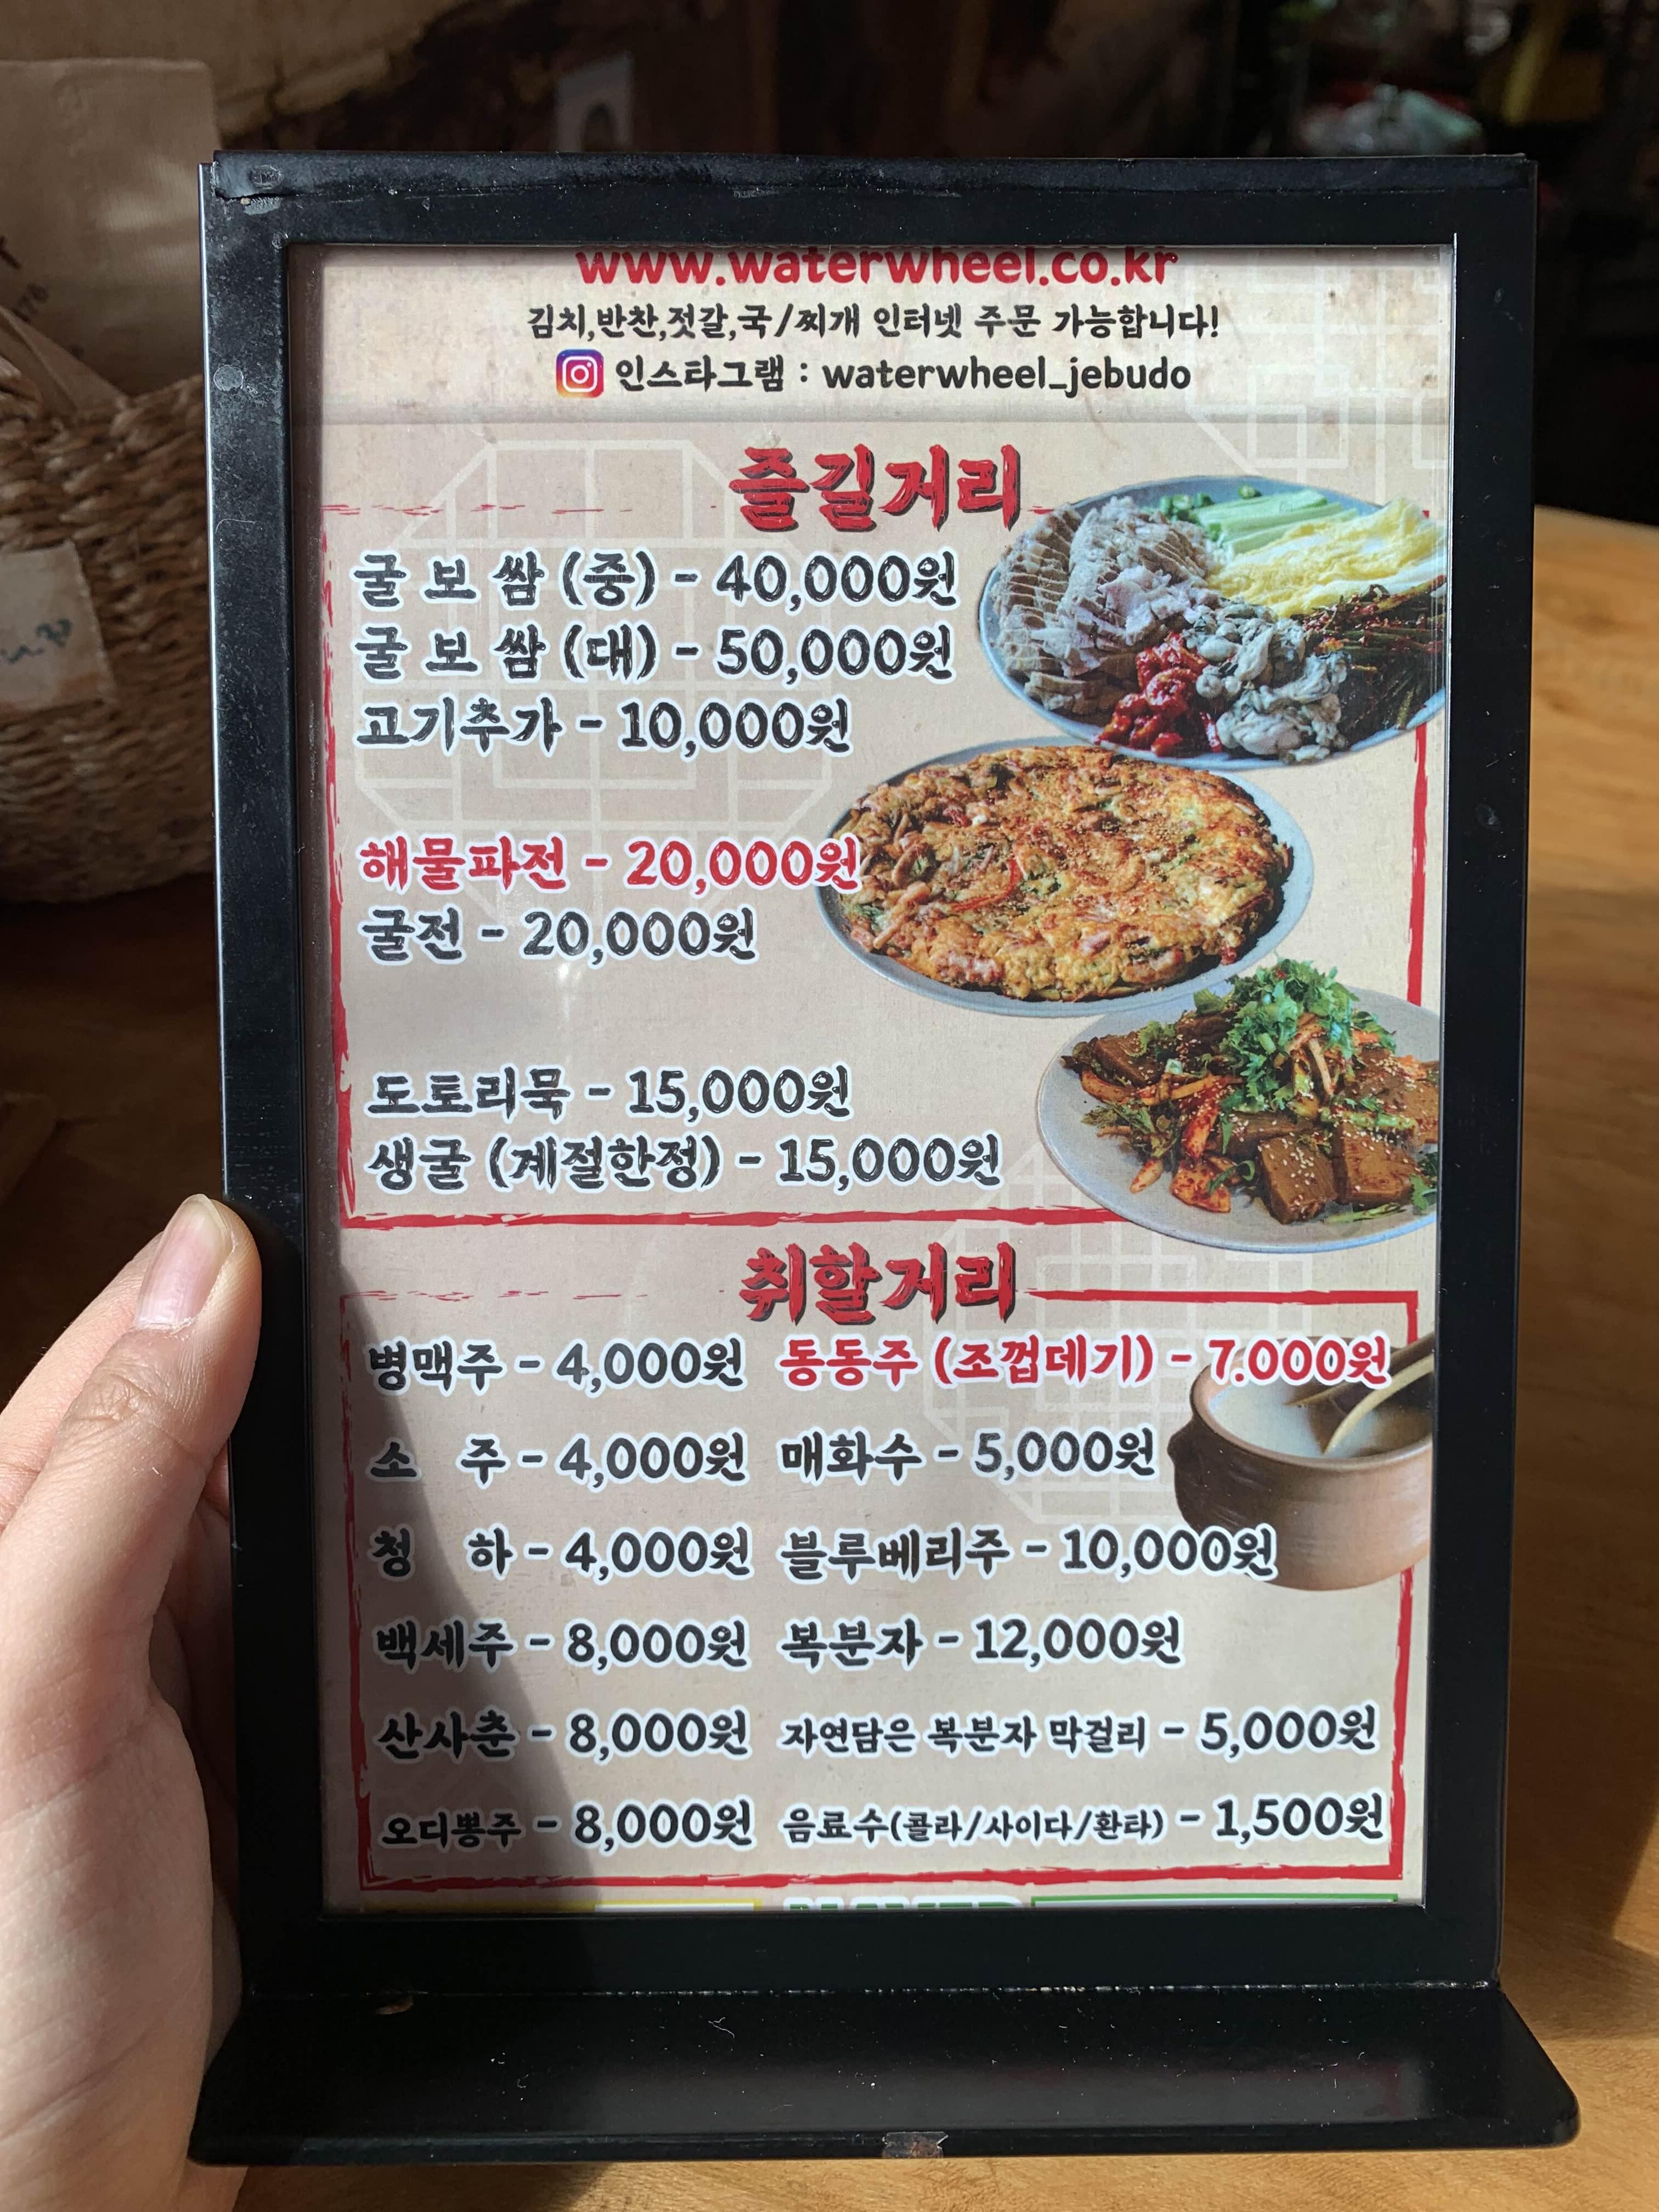 www.waterwheel.co.kr
김치,반찬,젓갈,국/찌개 인터넷 주문 가능합니다!
인스타그램 : waterwheel_jebudo
즐길거리
굴 보 쌈 (중) - 40,000원
굴 보 쌈 (대) - 50,000원
고기추가 - 10,000원
해물파전 - 20,000원
굴전 - 20,000원
도토리묵 - 15,000원
생굴 (계절한정) - 15,000원
취할거리
병맥주 - 4,000원 동동주 (조껍데기) - 7.000원
소 주 - 4,000원 매화수 - 5,000원
청 하 - 4,000원 블루베리주 - 10,000원
백세주 - 8,000원 복분자 - 12,000원
산사춘 - 8,000원 자연담은 복분자 막걸리 - 5,000원
오디뽕주 - 8,000원 음료수(콜라/사이다/환타) - 1,500원